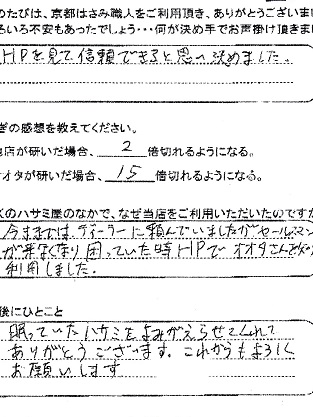 のたびは、京都はさみ職人をご利用頂き、ありがとうございま
ろいろ不安もあったでしょう・・・何が決め手でお声掛け頂きま
HPを見て信頼できると思い決めました。
ぎの感想を教えてください。
店が研いだ場合、 2 倍切れるようになる。
オオタが研いだ場合、 15 倍切れるようになる。
くのハサミ屋のなかで、なぜ当店をご利用いただいたのですか
今までは、ディーラーに頼んでいましたがセールスマン
が来なくなり困っていた時HPでオオタさんを
利用しました。
後にひとこと
眠っていたハサミをよみがえらせてくれて
ありがとうございます。これからもよろしく
お願いします